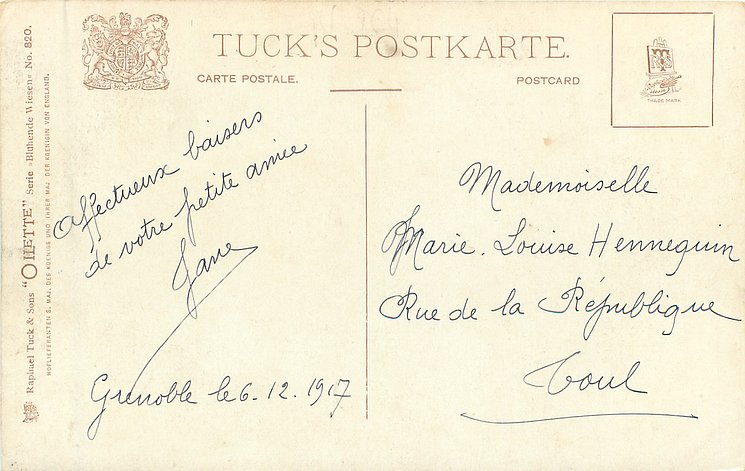 TUCK'S POSTKARTE.
CARTE POSTALE.
POSTCARD
TRADE MARK
Raphael Tuck & Sons "OILETTE" Serie »Blühende Wiesen« No. 820.
HOFLIEFERANTEN S. MAJ. DES KOENIGS UND IHRER MAJ. DER KOENIGIN VON ENGLAND.
Affectueux baisers
de votre petite amie
Jane
Grenoble le 6. 12. 1917
Mademoiselle
Marie. Louise Hennequin
Rue de la République
Toul